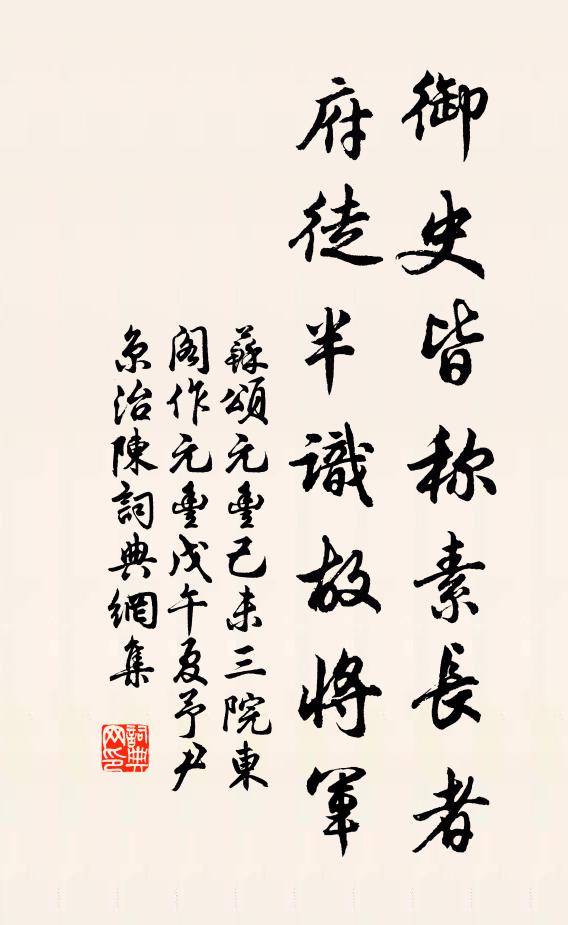 御史皆称素長者
府徒半識故將軍
蘇頌元豐己未三院東
閣作元豐戊午夏予尹
京治陳詞典網集
詞典網印